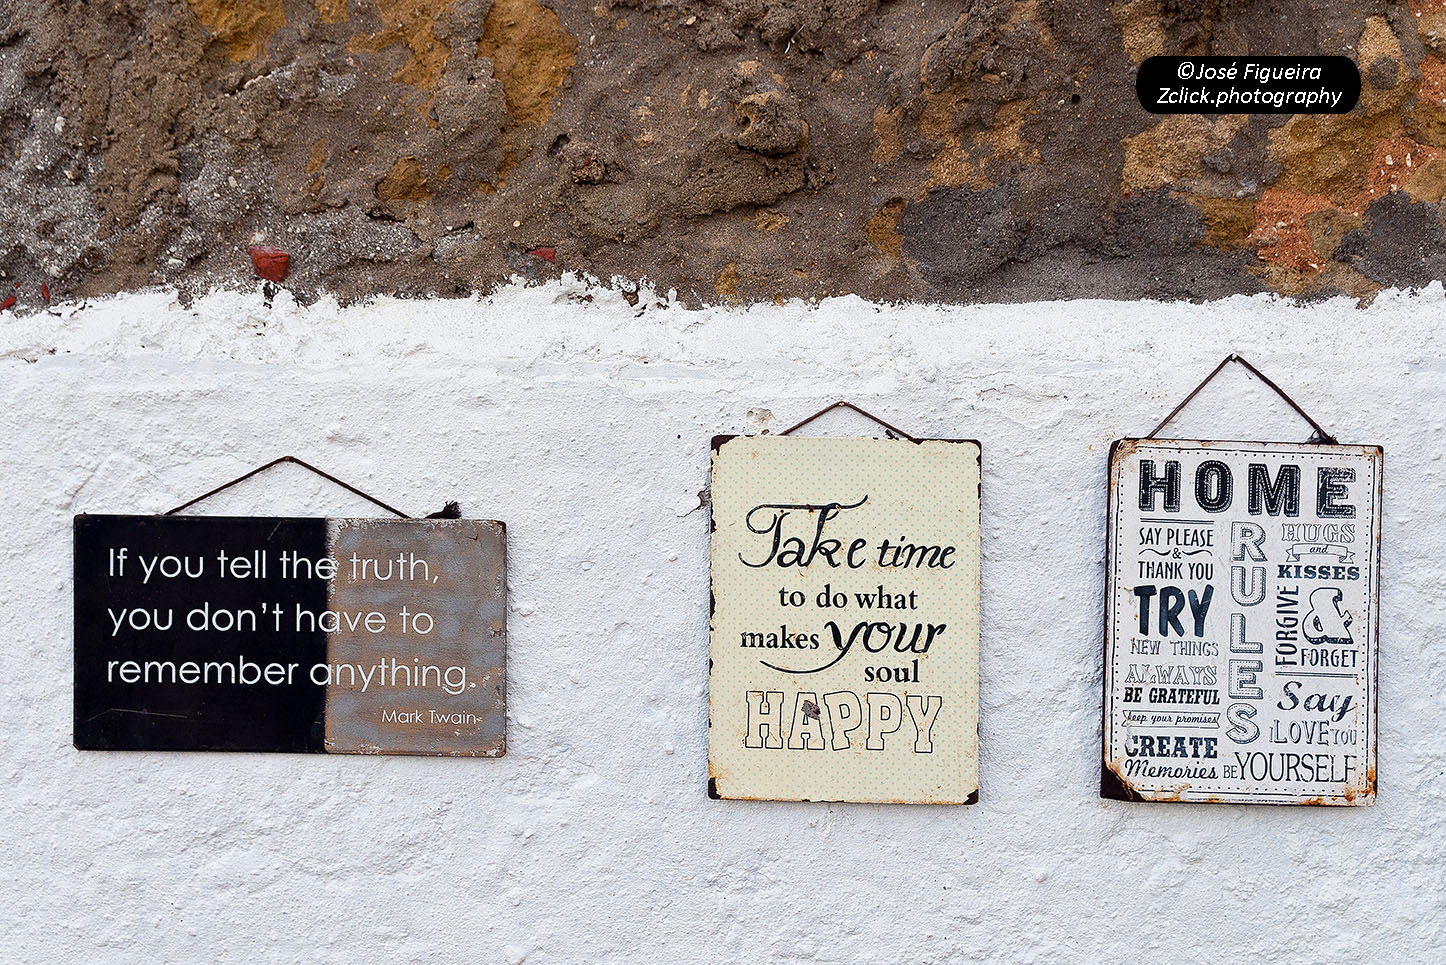 ©José Figueira
Zclick.photography
If you tell the truth,
you don't have to
remember anything.
Mark Twain
Take time
to do what
makes your
soul
HAPPY
HOME
RULES
SAY PLEASE
&
THANK YOU
TRY
NEW THINGS
ALWAYS
BE GRATEFUL
keep your promises
CREATE
Memories
HUGS
and
KISSES
FORGIVE
&
FORGET
Say
I LOVE YOU
BE YOURSELF